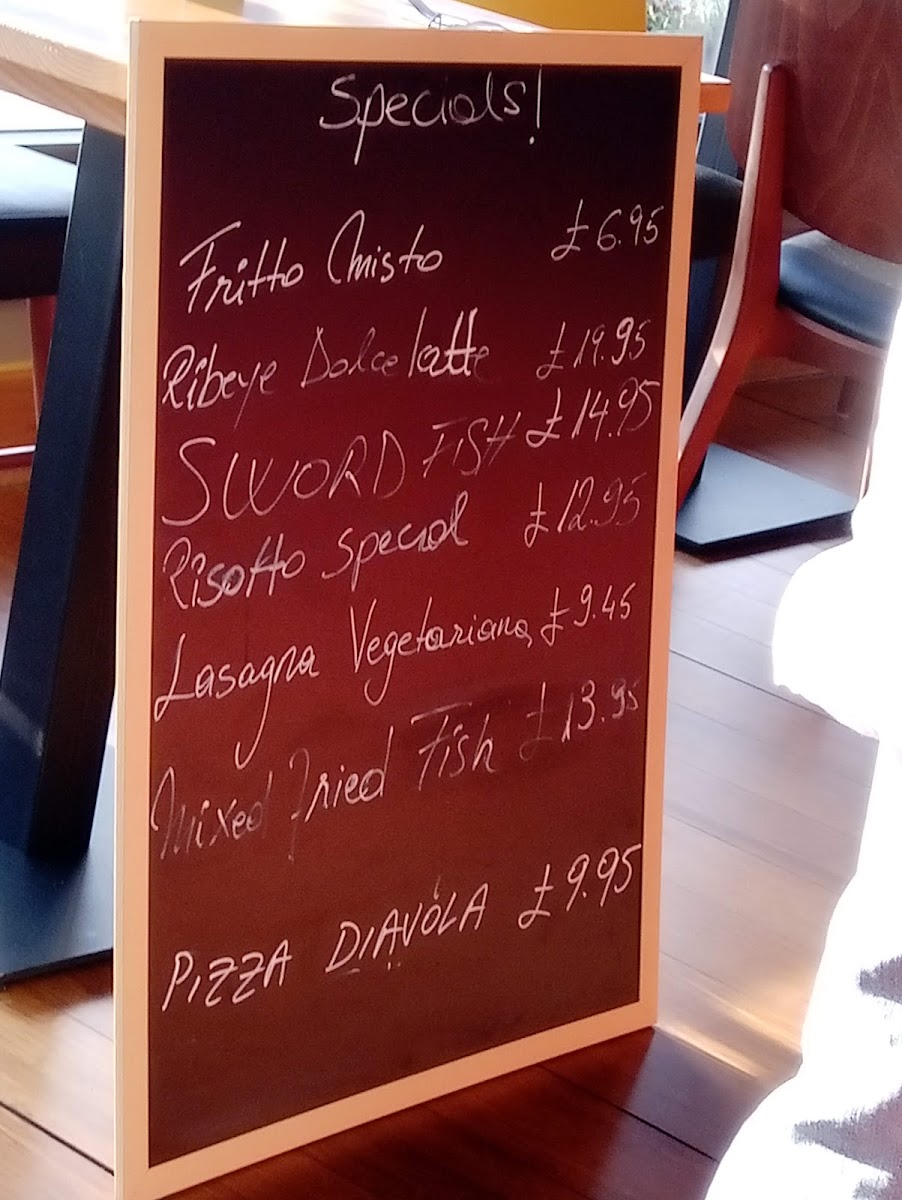 Specials!
Fritto Misto £6.95
Ribeye Dolcelatte £19.95
SWORD FISH £14.95
Risotto special £12.95
Lasagna Vegetariana £9.45
Mixed Fried Fish £13.95
PIZZA DIAVOLA £9.95